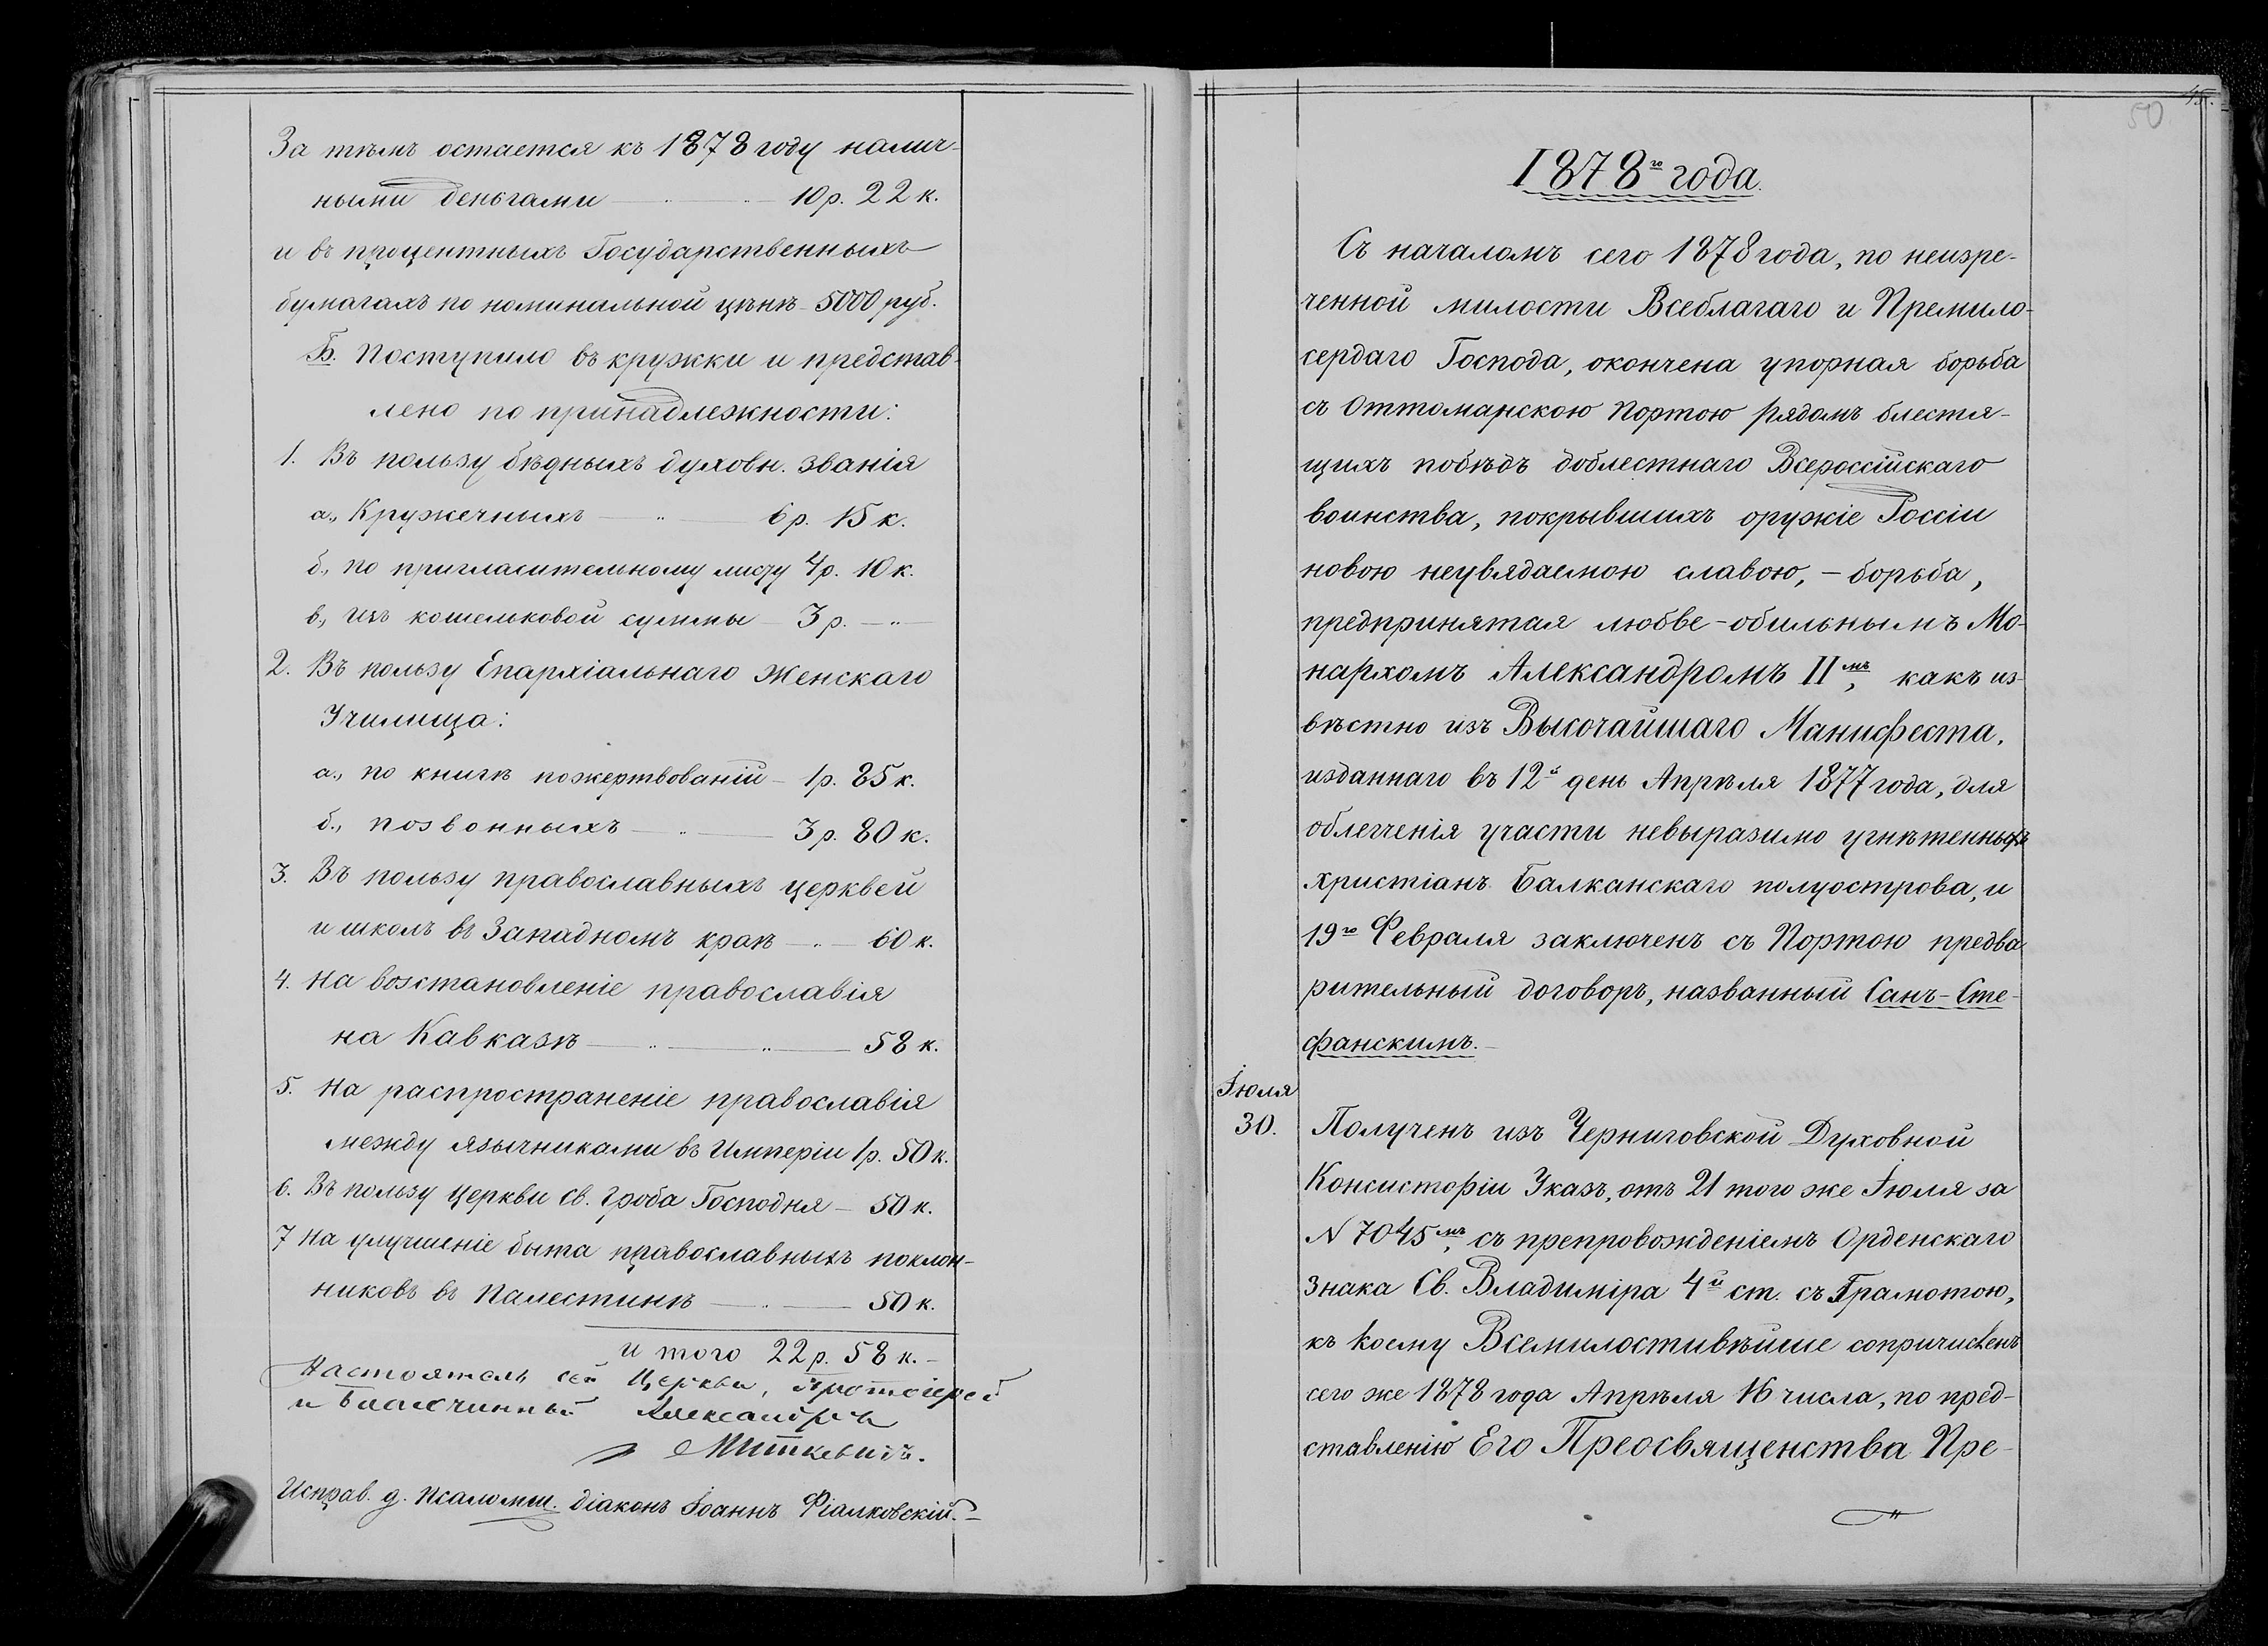 За тѣмъ остается къ 1878 году налич-
ными деньгами — " — " — 10 р. 22 к.
и въ процентныхъ Государственныхъ
бумагахъ по номинальной цѣнѣ - 5000 руб.
Б. Поступило въ кружки и представ-
лено по принадлежности:
1. Въ пользу бѣдныхъ духовн. званія
а., Кружечныхъ — " — 6 р. 15 к.
б., по пригласительному листу 4 р. 10 к.
в., изъ кошельковой суммы — 3 р. — " —
2. Въ пользу Епархіальнаго Женскаго
Училища:
а., по книгѣ пожертвованій — 1 р. 85 к.
б., позвонныхъ — " — 3 р. 80 к.
3. Въ пользу православныхъ церквей
и школъ въ Западномъ краѣ — " — 60 к.
4. На возстановленіе православія
на Кавказѣ — " — " — 58 к.
5. На распространеніе православія
между язычниками въ Имперіи 1 р. 50 к.
6. Въ пользу Церкви Св. Гроба Господня — 50 к.
7 На улучшеніе быта православныхъ поклон-
никовъ въ Палестинѣ — " — 50 к.
и того 22 р. 58 к. —
Настоятель сей Церкви, Протоіерей
и Благочинный Александръ
Миткевичъ.
Исправ. д. псаломщ. діаконъ Іоаннъ Фіалковскій. —
50
45.
1878го года.
Съ началомъ сего 1878 года, по неизре-
ченной милости Всеблагаго и Премило-
сердаго Господа, окончена упорная борьба
съ Оттоманскою Портою рядомъ блестя-
щихъ побѣдъ доблестнаго Всероссійскаго
воинства, покрывшихъ оружіе Россіи
новою неувядаемою славою, — борьба,
предпринятая любве-обильнымъ Мо-
нархомъ Александромъ IIмъ, какъ из-
вѣстно изъ Высочайшаго Манифеста,
изданнаго въ 12й день Апрѣля 1877 года, для
облегченія участи невыразимо угнѣтенныхъ
христіанъ Балканскаго полуострова, и
19го Февраля заключенъ съ Портою предва
рительный договоръ, названный Санъ-Сте-
фанскимъ. —
Іюля
30. Полученъ изъ Черниговской Духовной
Консисторіи Указъ, отъ 21 того же Іюля за
N 7045мъ, съ препровожденіемъ Орденскаго
знака Св. Владиміра 4й ст. съ Грамотою,
къ коему Всемилостивѣйше сопричисленъ
сего же 1878 года Апрѣля 16 числа, по пред-
ставленію Его Преосвященства Пре-